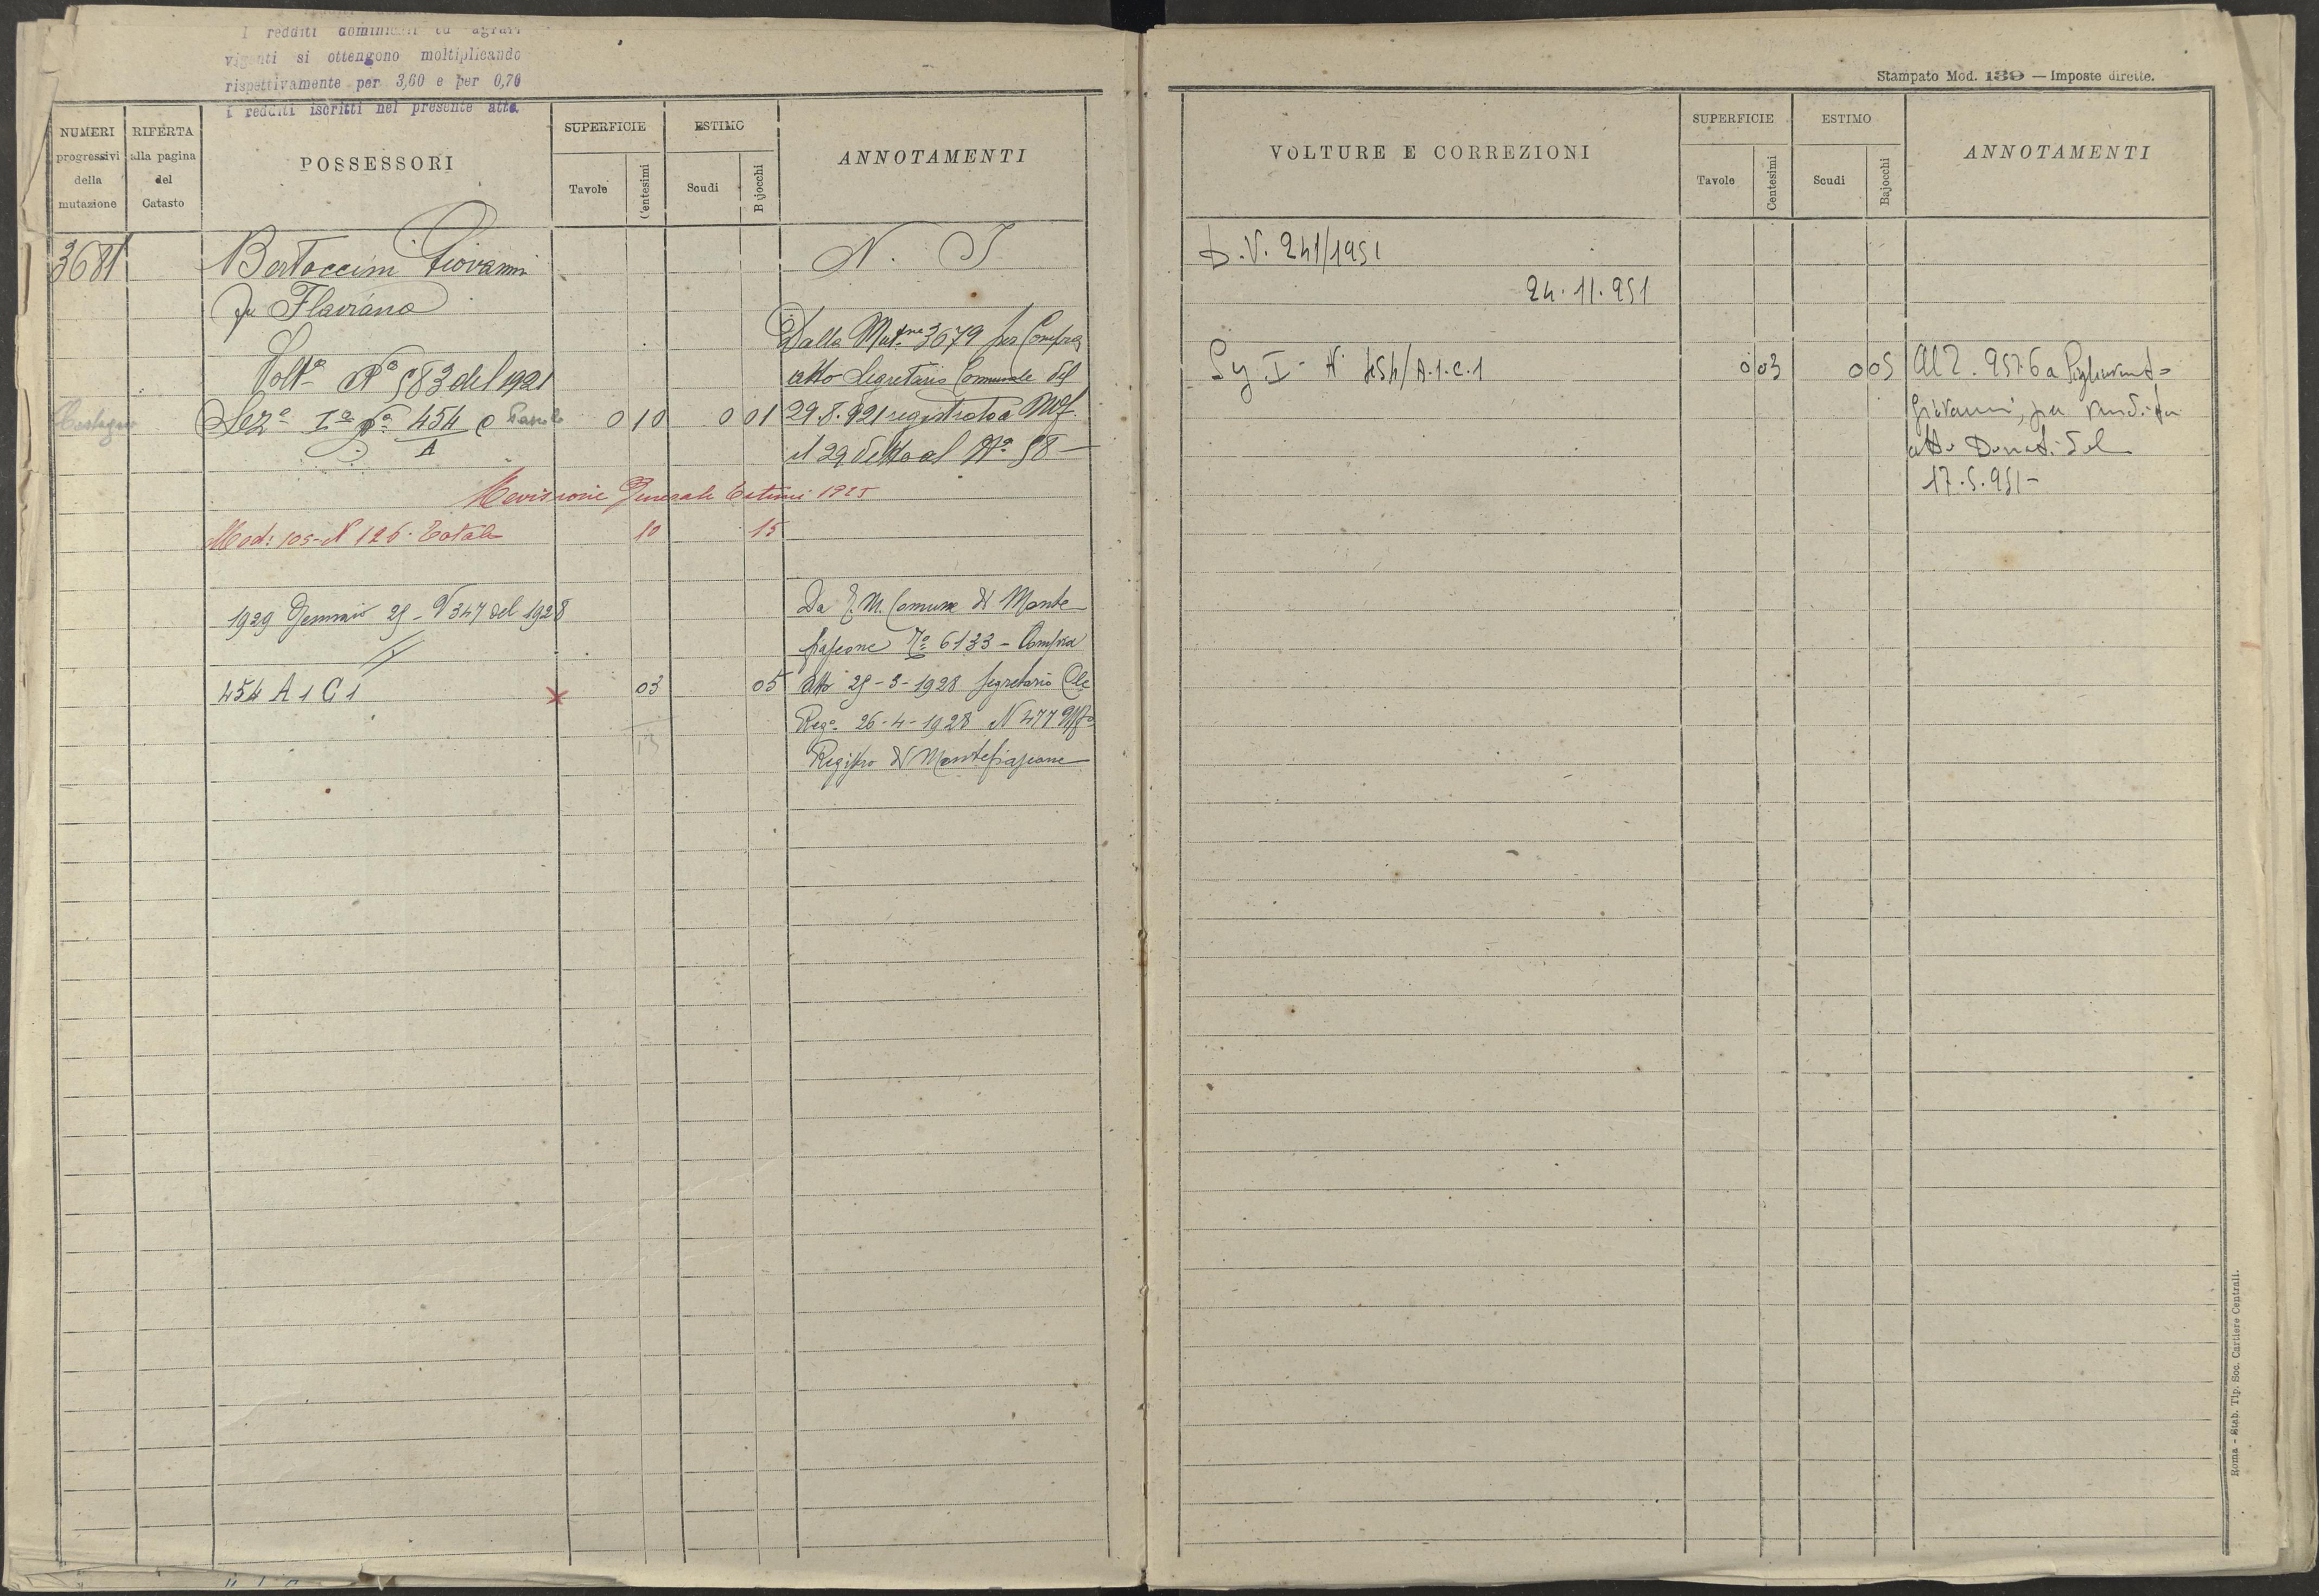 I redditi dominicali ed agrari
vigenti si ottengono moltiplicando
rispettivamente per 3,60 e per 0,70
i redditi iscritti nel presente atto.
NUMERI
progressivi
della
mutazione
RIFERTA
alla pagina
del
Catasto
POSSESSORI
SUPERFICIE
Tavole
Centesimi
ESTIMO
Scudi
Bajocchi
ANNOTAMENTI
3681
Bertoccini Giovanni
fu Flaviano
N. I
Volta No 583 del 1921
Dalla Mutne 3679 per Compra
atto Segretario Comunale del
Seza Ia No 454 C
A
0 10
0 01
29.8.921 registrato a Mf.
il 29 detto al No 58 —
Revisione Generale Estimi 1925
Mod: 105 - N 126. Totale
10
15
1929 Gennaio 25 - N 347 del 1928
Da P.M. Comune di Monte
fiascone No 6133 - Compra
454 A 1 C 1
×
03
05
atto 25-3-1928 Segretario Cle
13
Rego 26-4-1928 N 477
Registro di Montefiascone
Stampato Mod. 139 — Imposte dirette.
VOLTURE E CORREZIONI
SUPERFICIE
Tavole
Centesimi
ESTIMO
Scudi
Bajocchi
ANNOTAMENTI
D.V. 241/1951
24.11.951
I - N 454/A.1.C.1
0 03
0 05
Al P. 9576 a
Giovanni, per vendita
atto Donati del
17.5.951 -
Roma - Stab. Tip. Soc. Cartiere Centrali.